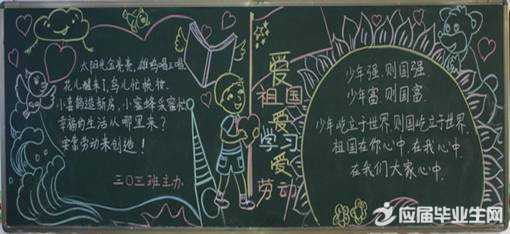 太阳光金亮亮，雄鸡唱三唱
花儿醒来了，鸟儿忙梳妆
小喜鹊造新房，小蜜蜂采蜜忙
幸福的生活从哪里来？
要靠劳动来创造！
三〇三班主办
爱
祖国
爱
学习
爱
劳动
少年强，则国强
少年富，则国富
少年屹立于世界，则国屹立于世界
祖国在你心中，在我心中
在我们大家心中
应届毕业生网